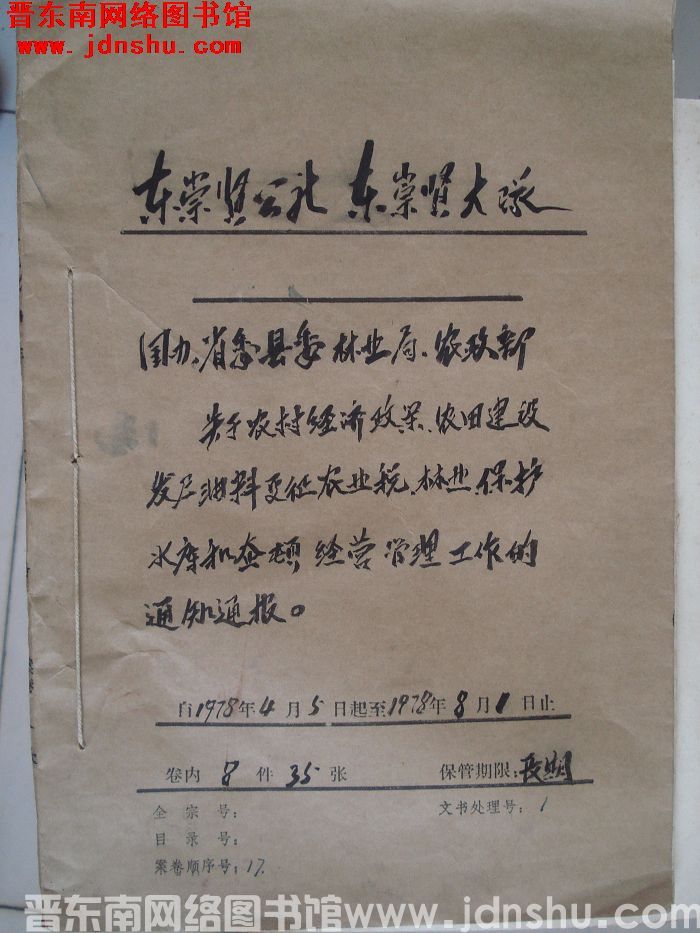 晋东南网络图书馆
www.jdnshu.com
东崇贤公社 东崇贤大队
国办、省委县委 林业局、农政新
关于农村经济政策、农田建设
发展油料更征农业税、林业、保护
水库和 经营管理工作的
通知通报。
自1978年4月5日起至1978年8月1日止
卷内 8 件 35 张 保管期限:长期
全宗号: 文书处理号:1
目录号:
案卷顺序号:17.
晋东南网络图书馆www.jdnshu.com